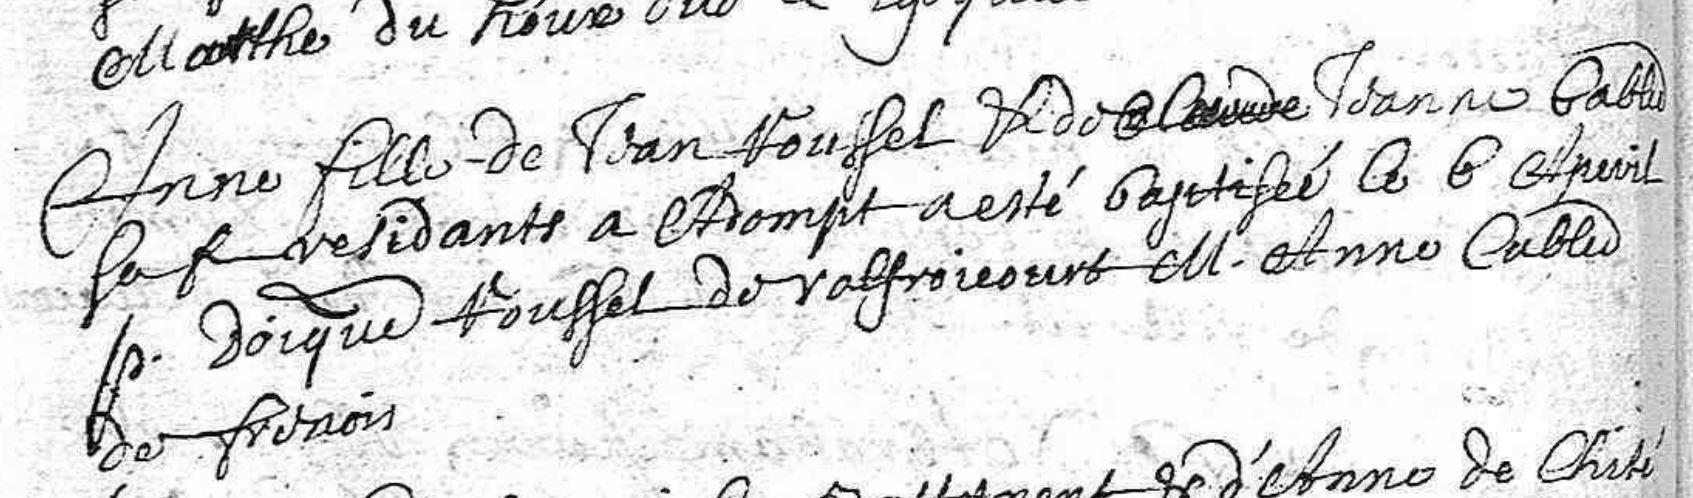 Matthe du
Anne fille de Jean Roussel & de Jeanne Cablé
sa f residants a Adompt a esté baptiseé le 6 Apvril
p. doique Roussel de ralfroicourt M. Anne Cablé
de frenois
& d'Anne de Chité